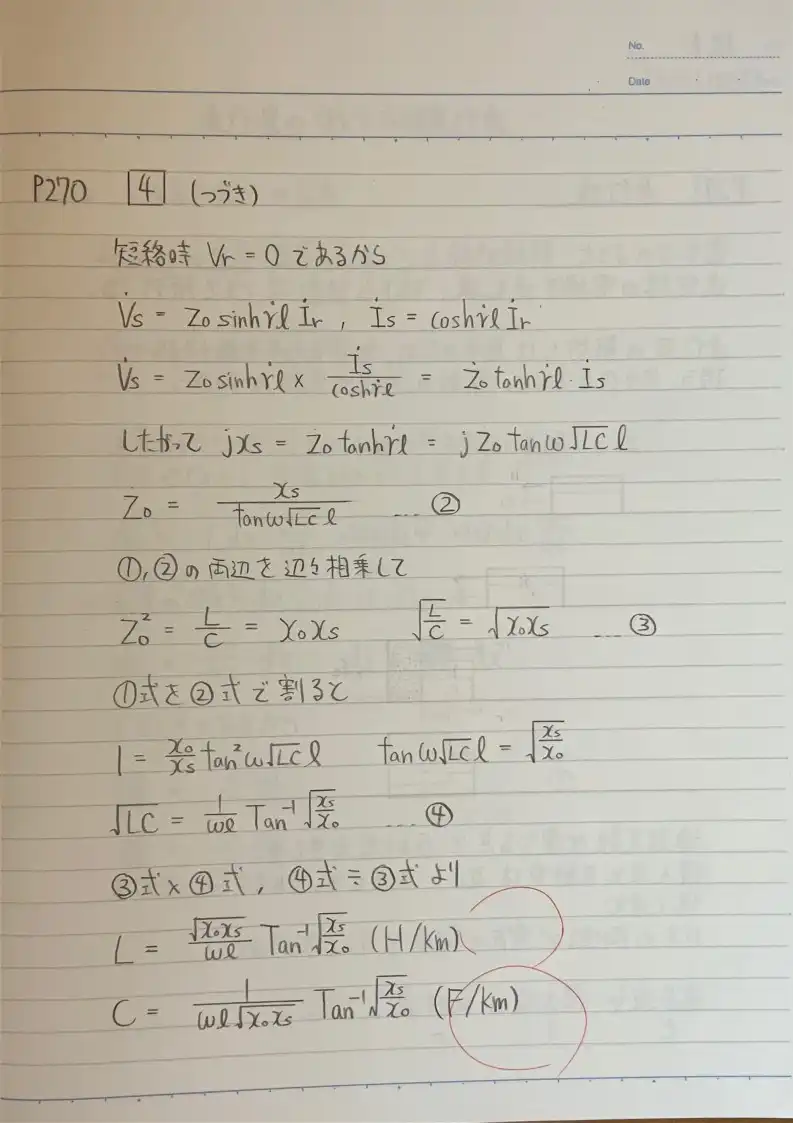 No.
Date
P270 4 (つづき)
短絡時 Vr = 0 であるから
V̇s = Z0 sinh γ̇l İr , İs = cosh γ̇l İr
V̇s = Z0 sinh γ̇l × İs/cosh γ̇l = Ż0 tanh γ̇l · İs
したがって jxs = Z0 tanh γ̇l = jZ0 tan ω√LC l
Z0 = xs/(tan ω√LC l) … ②
①,②の両辺を辺々相乗して
Z0² = L/C = x0xs √(L/C) = √(x0xs) … ③
①式を②式で割ると
1 = x0/xs tan² ω√LC l tan ω√LC l = √(xs/x0)
√LC = 1/(ωl) Tan⁻¹ √(xs/x0) … ④
③式×④式, ④式÷③式より
L = √(x0xs)/(ωl) Tan⁻¹ √(xs/x0) (H/km)
C = 1/(ωl√(x0xs)) Tan⁻¹ √(xs/x0) (F/km)